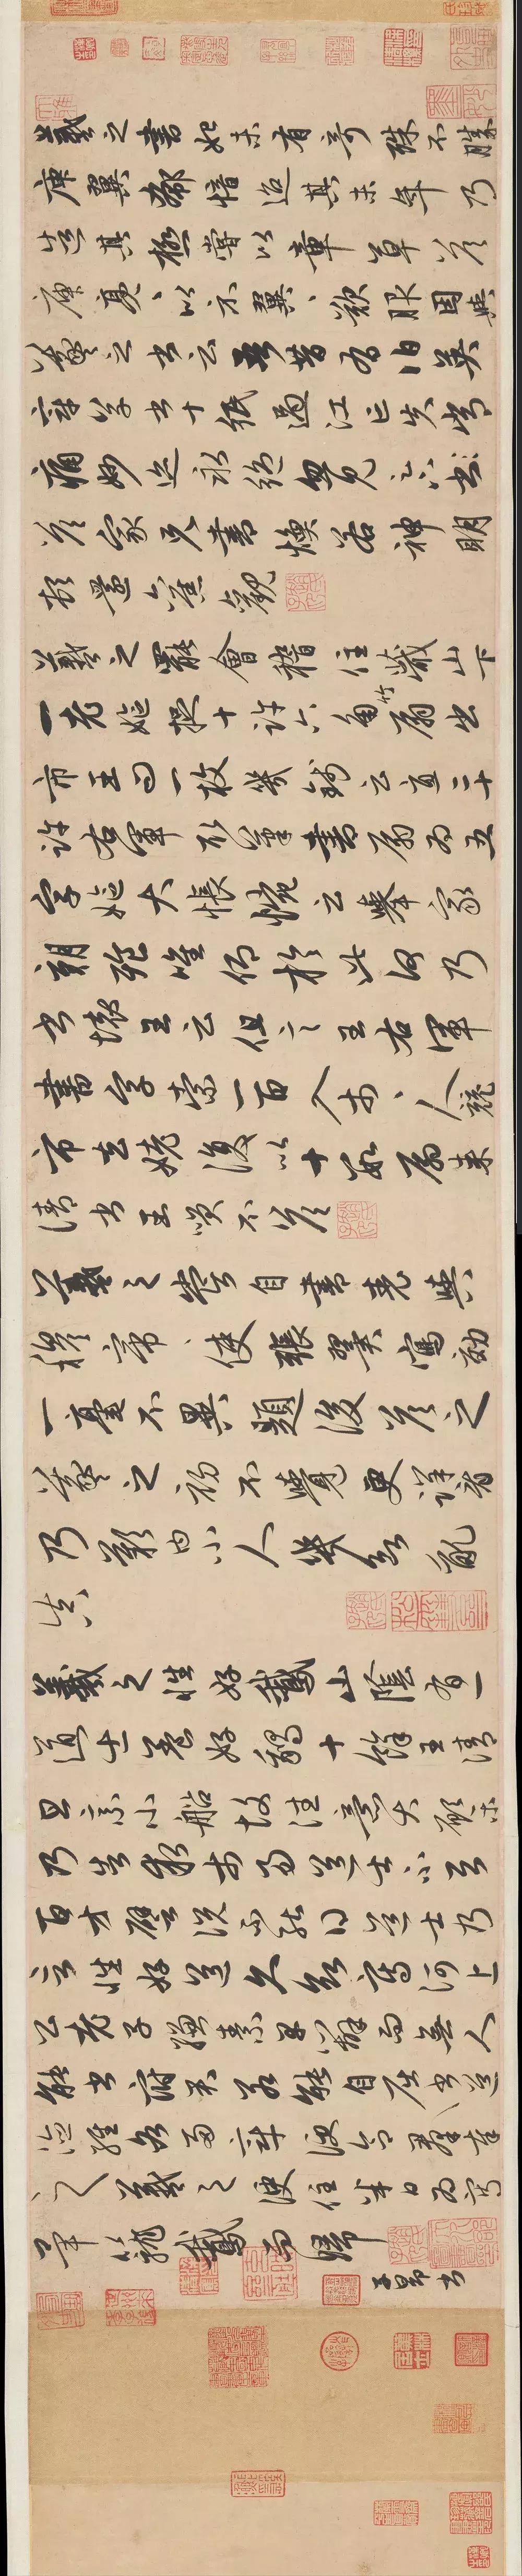 羲之書初未有奇殊不勝
庾翼郗愔迨其末年乃
造其極嘗以章草答
庾亮亮以示翼翼歎服因與
羲之書云吾昔有伯英
章草書十紙過江亡失常
痛妙迹永絕忽見足下書
答家兄書煥若神明
頓還舊觀
羲之罷會稽住蕺山下
一老嫗捉十許六角竹扇出
市王問一枚幾錢云直二十
許右軍取筆書扇扇為五
字嫗大悵惋云舉家
朝飧唯仰於此何乃
書壞王云但言王右軍
書字索一百入市市人競
市去姥復以十數扇來
請書王笑不答
羲之嘗自書表與
穆帝帝使張翼寫效
一毫不異題後答之
羲之初不覺更詳看
乃歎曰小人幾欲亂
真
羲之性好鵝山陰有一
道士養好鵝十餘王清
旦乘小船故往意大願樂
乃告求市易道士不與
百方譬說不能得道士乃
言性好道久欲寫河上
公老子縑素早辦而無人
能書府君若能自屈書道
德經各兩章便合群奉
羲之便住半日為寫
畢籠鵝而歸
子昂書